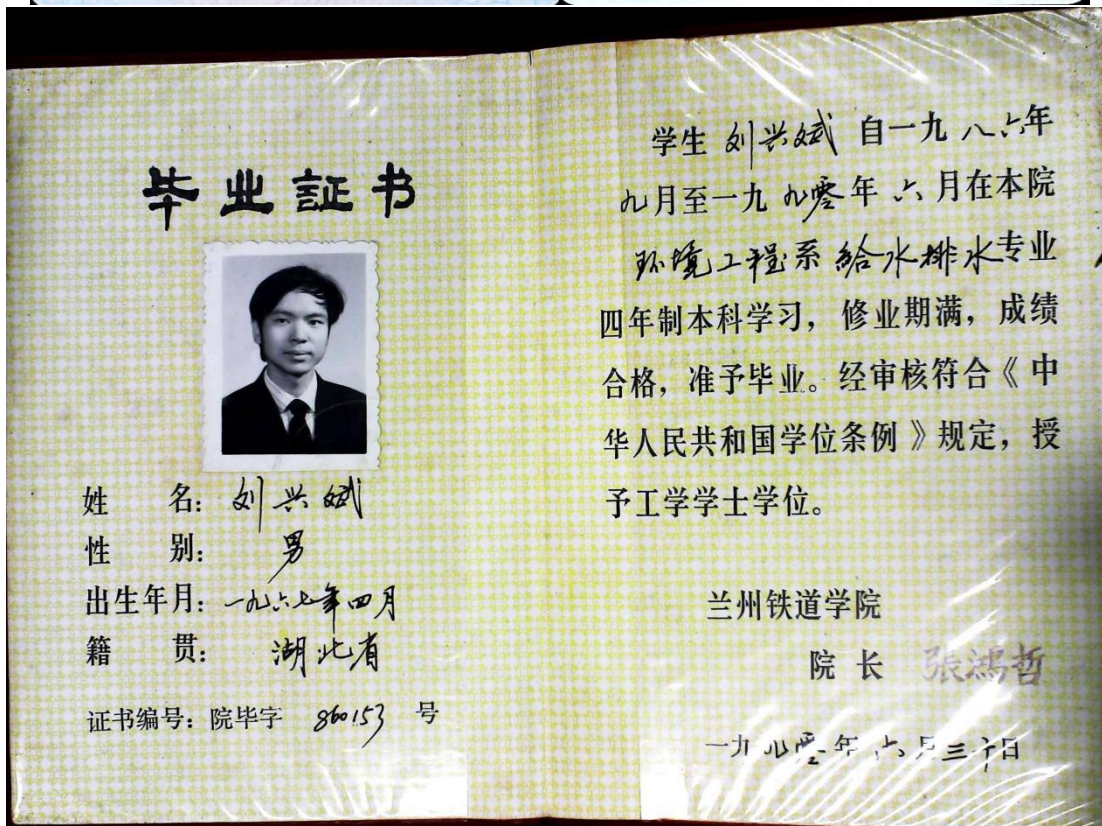 毕业証书
姓 名：刘兴斌
性 别：男
出生年月：一九六七年四月
籍 贯：湖北省
证书编号：院毕字 860153 号
学生 刘兴斌 自一九八六年
九月至一九九零年六月在本院
环境工程系 給水排水专业
四年制本科学习，修业期满，成绩
合格，准予毕业。经审核符合《中
华人民共和国学位条例》规定，授
予工学学士学位。
兰州铁道学院
院 长 張鴻哲
一九九零年六月三十日